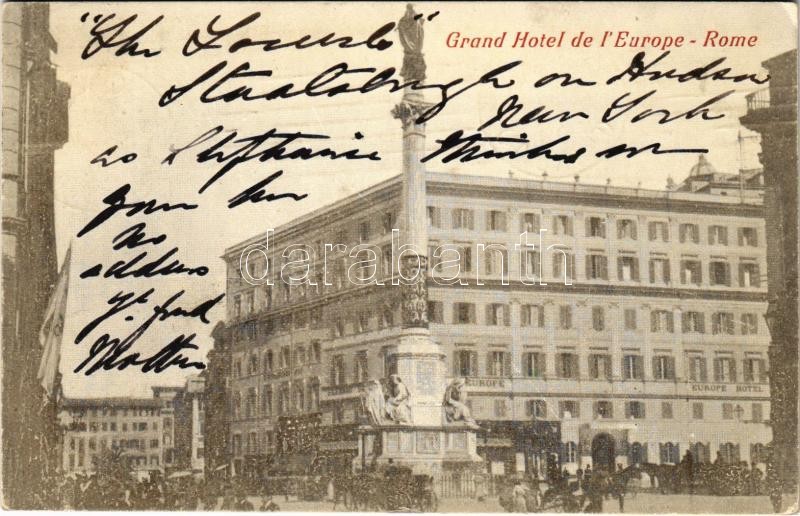 Grand Hotel de l'Europe - Rome
"The Locusts"
Staatsburgh on Hudson
New York
as Stephanie thinks
you have
no
address
Yr fond
Mother
darabanth
EUROPE
EUROPE HOTEL